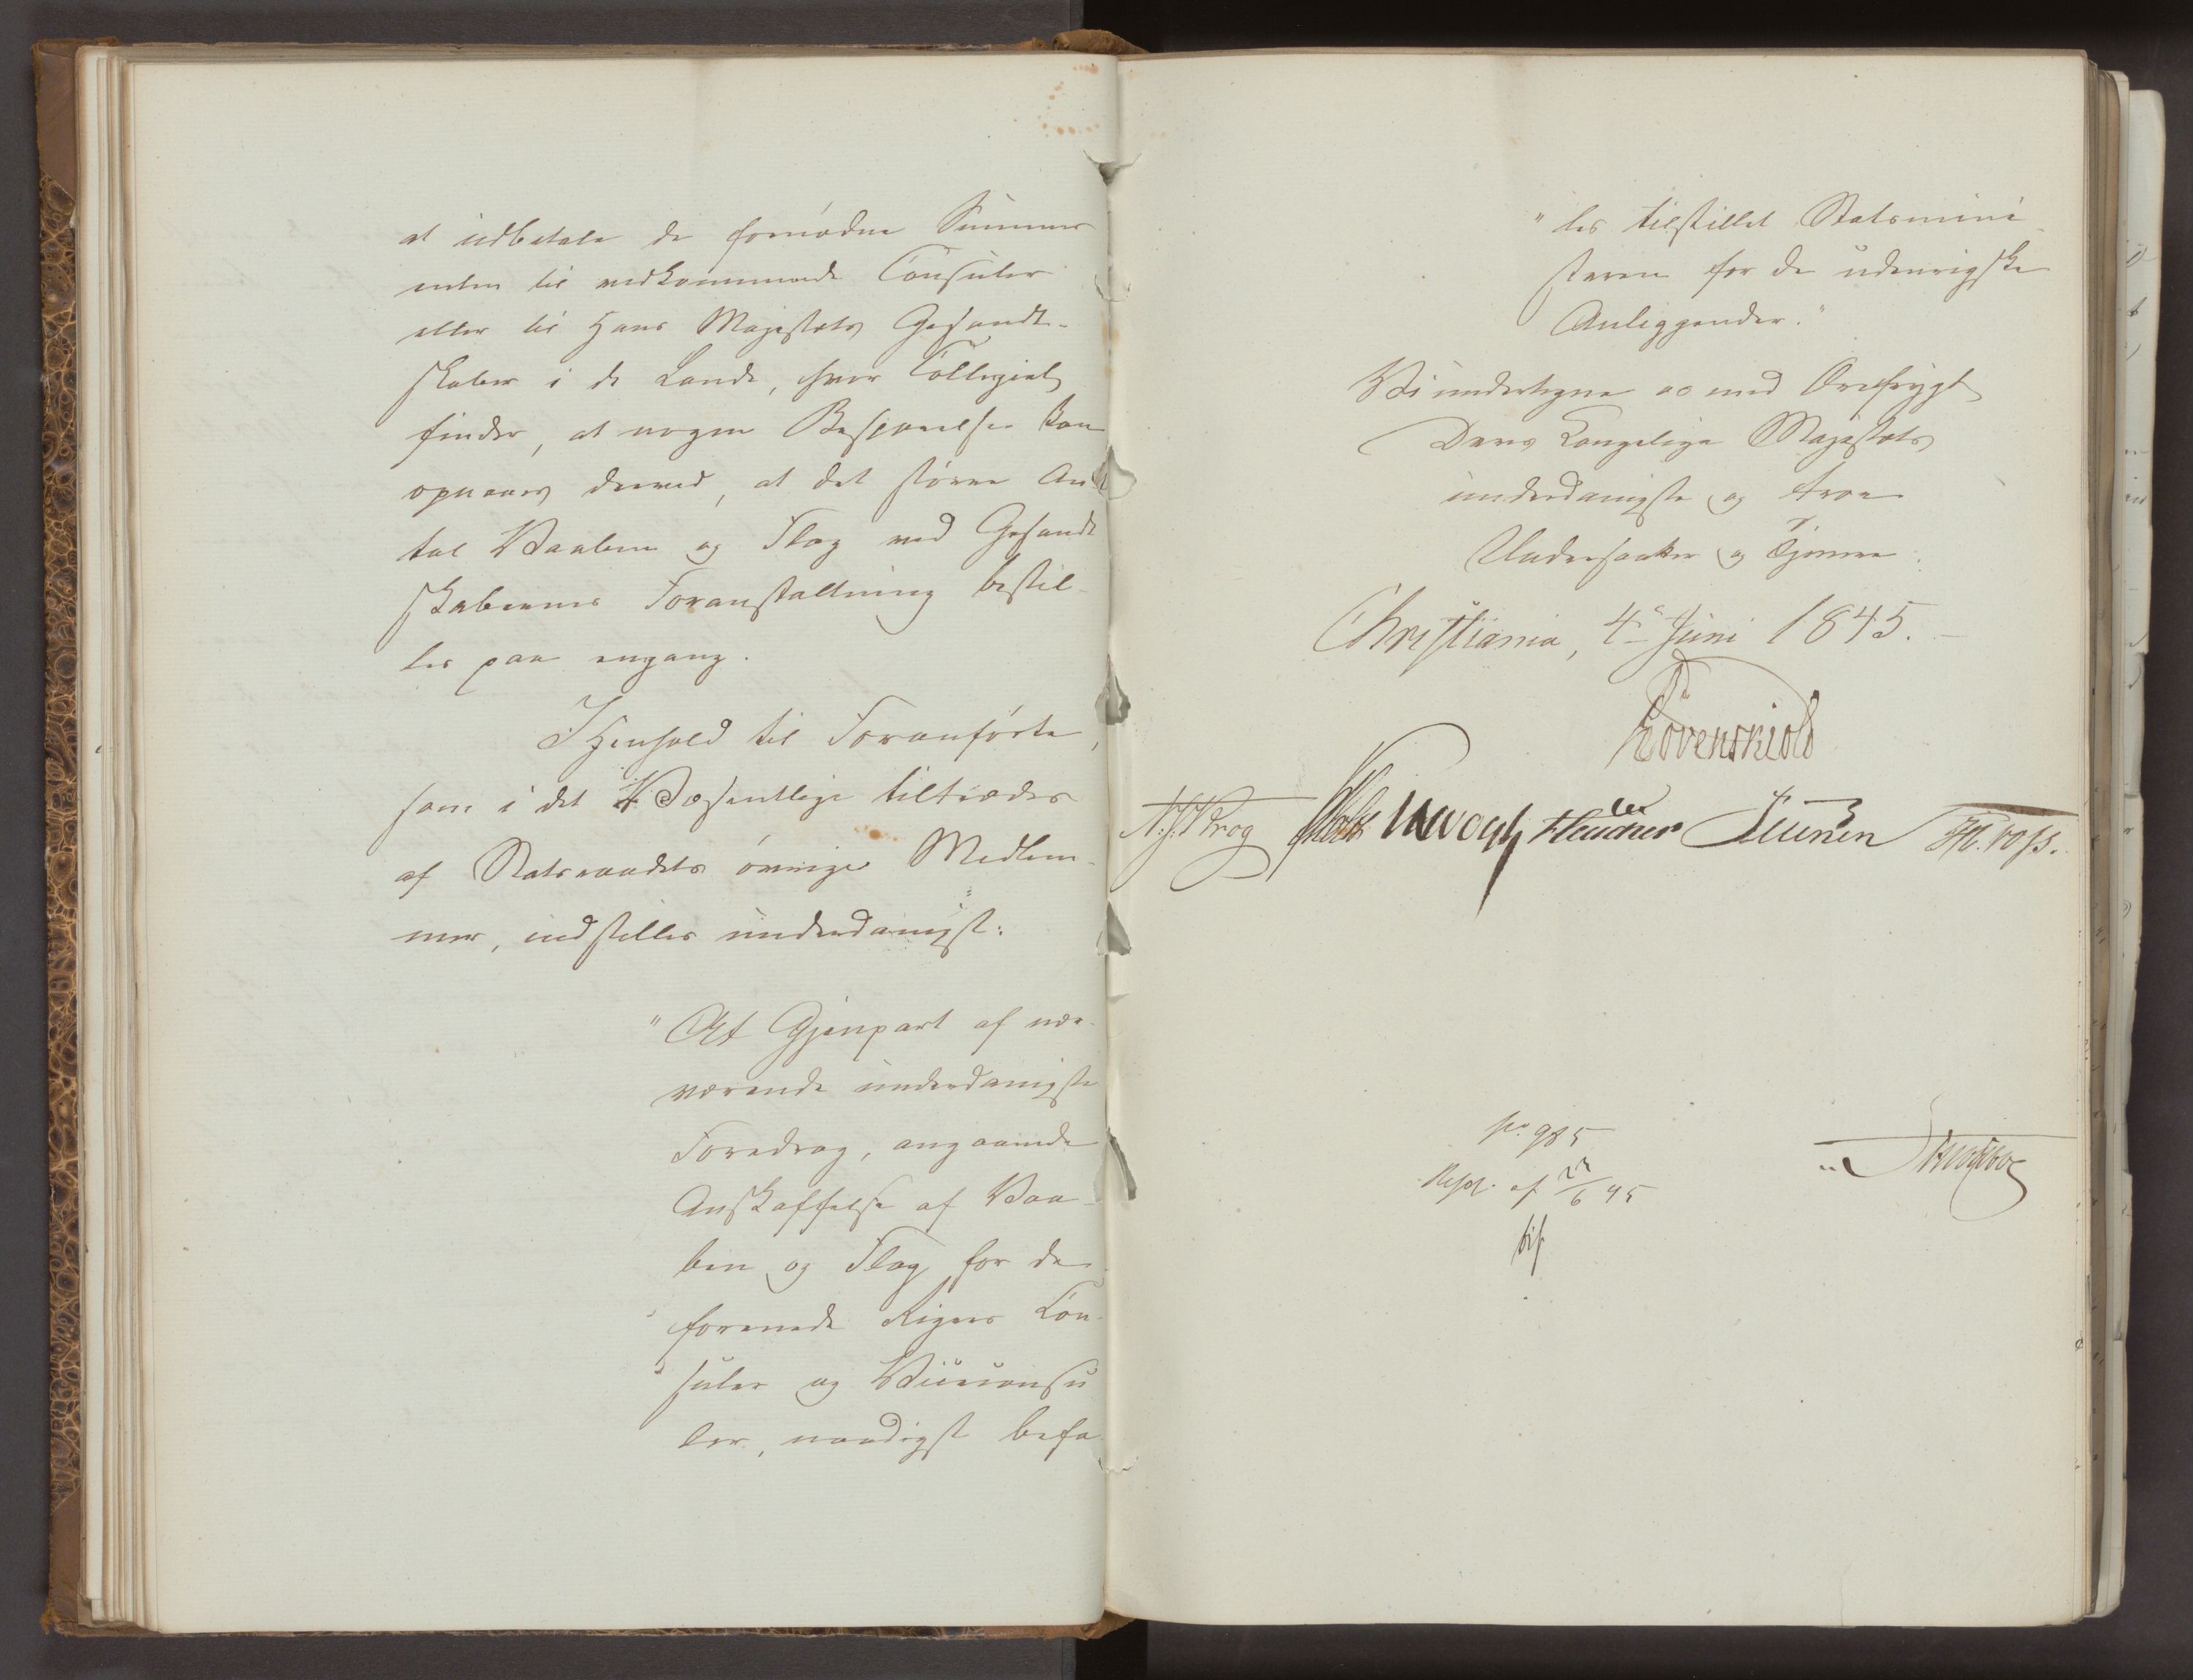 at udbetale de fornødne Summer
enten til vedkommende Consuler
eller til Hans Majestæts Gesandt-
skaber i de Lande, hvor Collegiet
finder, at nogen Besparelse kan
opnaaes derved, at det større An-
tal Vaaben og Flag ved Gesandt
skabernes Foranstaltning bestil-
les paa engang.
I Henhold til Foranførte,
som i det Væsentlige tiltrædes
af Statsraadets øvrige Medlem-
mer, indstilles underdanigst:
"At Gjenpart af nær-
værende underdanigste
Foredrag, angaaende
Anskaffelse af Vaa-
ben og Flag for de
forenede Rigers Con-
suler og Viceconsu
ler, naadigst befa
"les tilstillet Statsmini-
steren for de udenrigske
Anliggender."
Vi undertegne os med Ærefrygt
Deres Kongelige Majestæts
underdanigste og troe
Undersaatter og Tjenere.
Christiania, 4de Juni 1845.
Løvenskiold
Krog Holst Vogt Petersen J. H. Voss.
No. 985
Resol. af 23/6 45